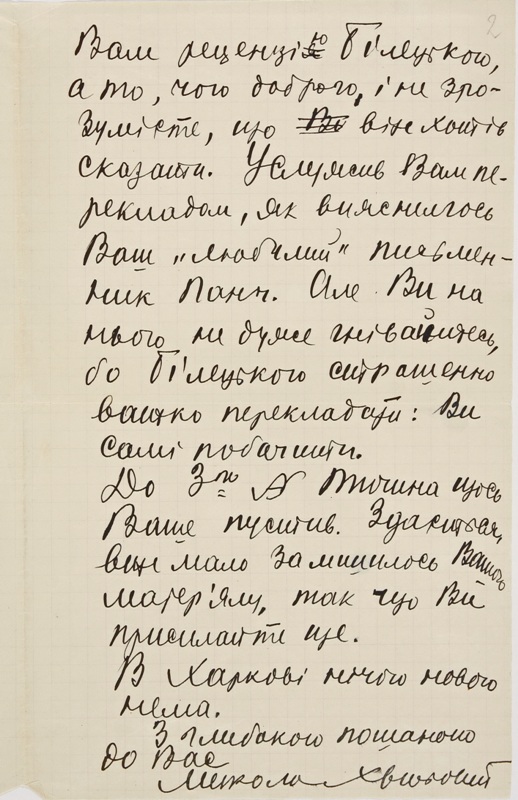 2
Вам рецензію Білецького,
а то, чого доброго, і не зро-
зумієте, що він хотів
сказати. Услужив Вам пе-
рекладом, як вияснилось
Ваш „любимий" письмен-
ник Панч. Але Ви на
нього не дуже гнівайтесь,
бо Білецького страшенно
важко перекладати: Ви
самі побачите.
До 3го № щось
Ваше пустив. Здається,
вже мало залишилось Вашого
матер'ялу, так що Ви
присилайте ще.
В Харкові нічого нового
нема.
З глибокою пошаною
до Вас
Микола Хвильовий